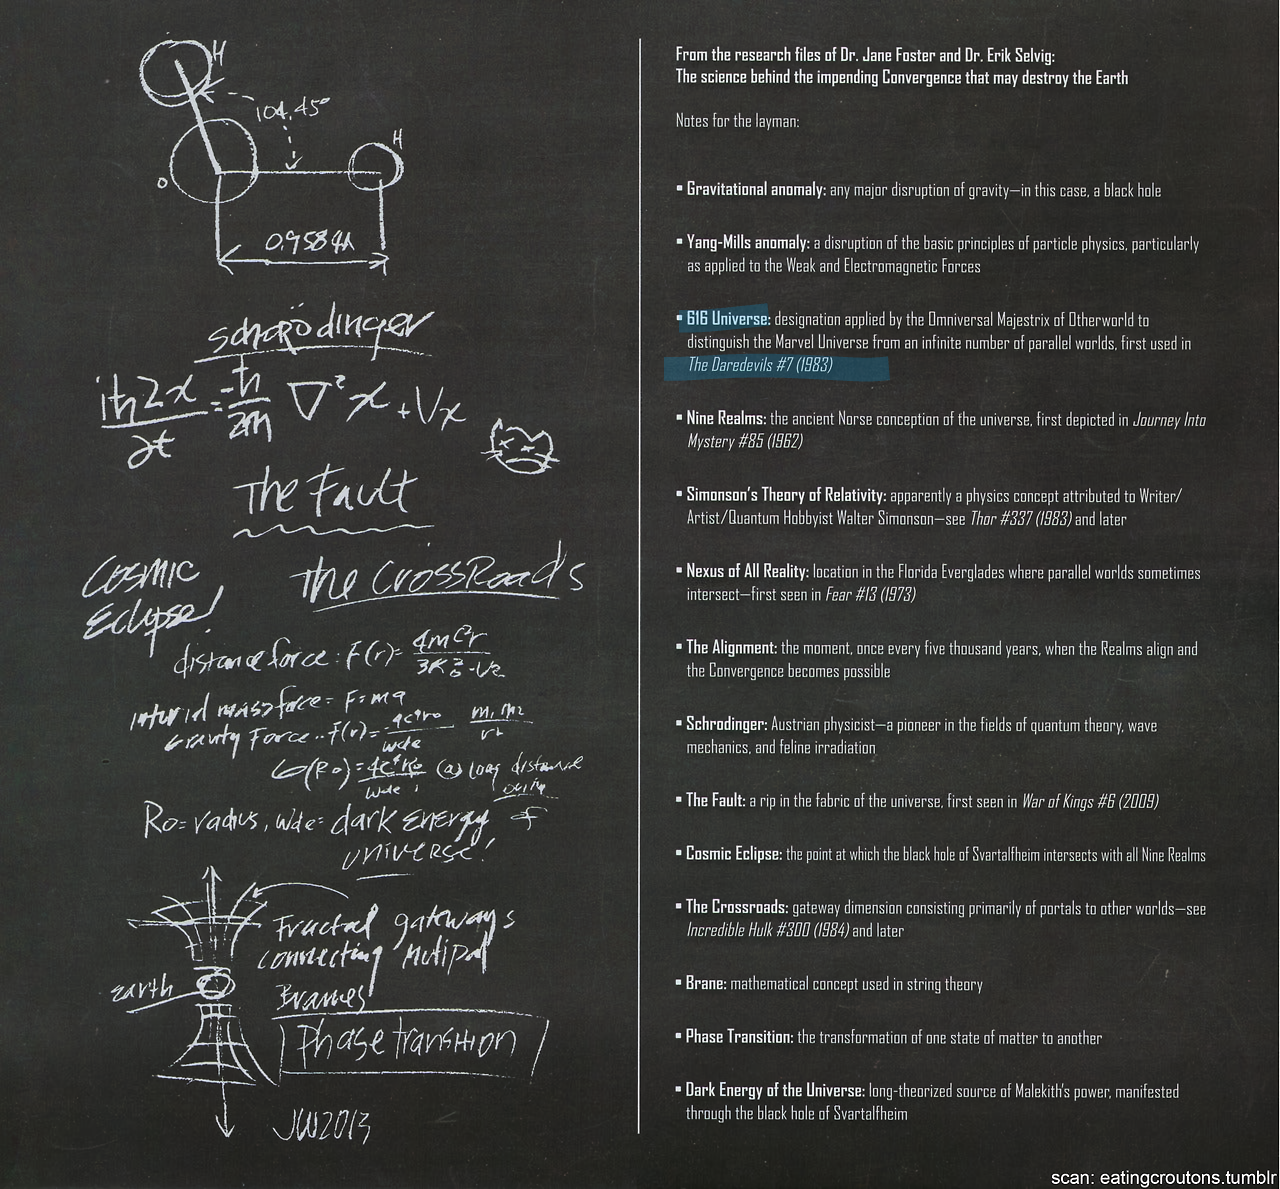 H
104.45°
H
O
0.9584A
schrödinger
iħ2x = -ħ ∇² x + Vx
∂t 2m
The Fault
Cosmic
Eclipse!
The CrossRoads
distance force: F(r)= 4mc²r
Interial mass force = F=ma
Gravity Force.. f(r)= 4c⁴r₀ m₁ m₂
wde r²
G(R₀)= 4c⁴R₀ (a) long distance
wde
Ro=radius, wde= dark energy of
universe!
Fractal gateways
connecting Mutipal
Branes
earth
Phase transition
JW2013
From the research files of Dr. Jane Foster and Dr. Erik Selvig:
The science behind the impending Convergence that may destroy the Earth
Notes for the layman:
▪ Gravitational anomaly: any major disruption of gravity—in this case, a black hole
▪ Yang-Mills anomaly: a disruption of the basic principles of particle physics, particularly
as applied to the Weak and Electromagnetic Forces
▪ 616 Universe: designation applied by the Omniversal Majestrix of Otherworld to
distinguish the Marvel Universe from an infinite number of parallel worlds, first used in
The Daredevils #7 (1983)
▪ Nine Realms: the ancient Norse conception of the universe, first depicted in Journey Into
Mystery #85 (1962)
▪ Simonson's Theory of Relativity: apparently a physics concept attributed to Writer/
Artist/Quantum Hobbyist Walter Simonson—see Thor #337 (1983) and later
▪ Nexus of All Reality: location in the Florida Everglades where parallel worlds sometimes
intersect—first seen in Fear #13 (1973)
▪ The Alignment: the moment, once every five thousand years, when the Realms align and
the Convergence becomes possible
▪ Schrodinger: Austrian physicist—a pioneer in the fields of quantum theory, wave
mechanics, and feline irradiation
▪ The Fault: a rip in the fabric of the universe, first seen in War of Kings #6 (2009)
▪ Cosmic Eclipse: the point at which the black hole of Svartalfheim intersects with all Nine Realms
▪ The Crossroads: gateway dimension consisting primarily of portals to other worlds—see
Incredible Hulk #300 (1984) and later
▪ Brane: mathematical concept used in string theory
▪ Phase Transition: the transformation of one state of matter to another
▪ Dark Energy of the Universe: long-theorized source of Malekith's power, manifested
through the black hole of Svartalfheim
scan: eatingcroutons.tumblr